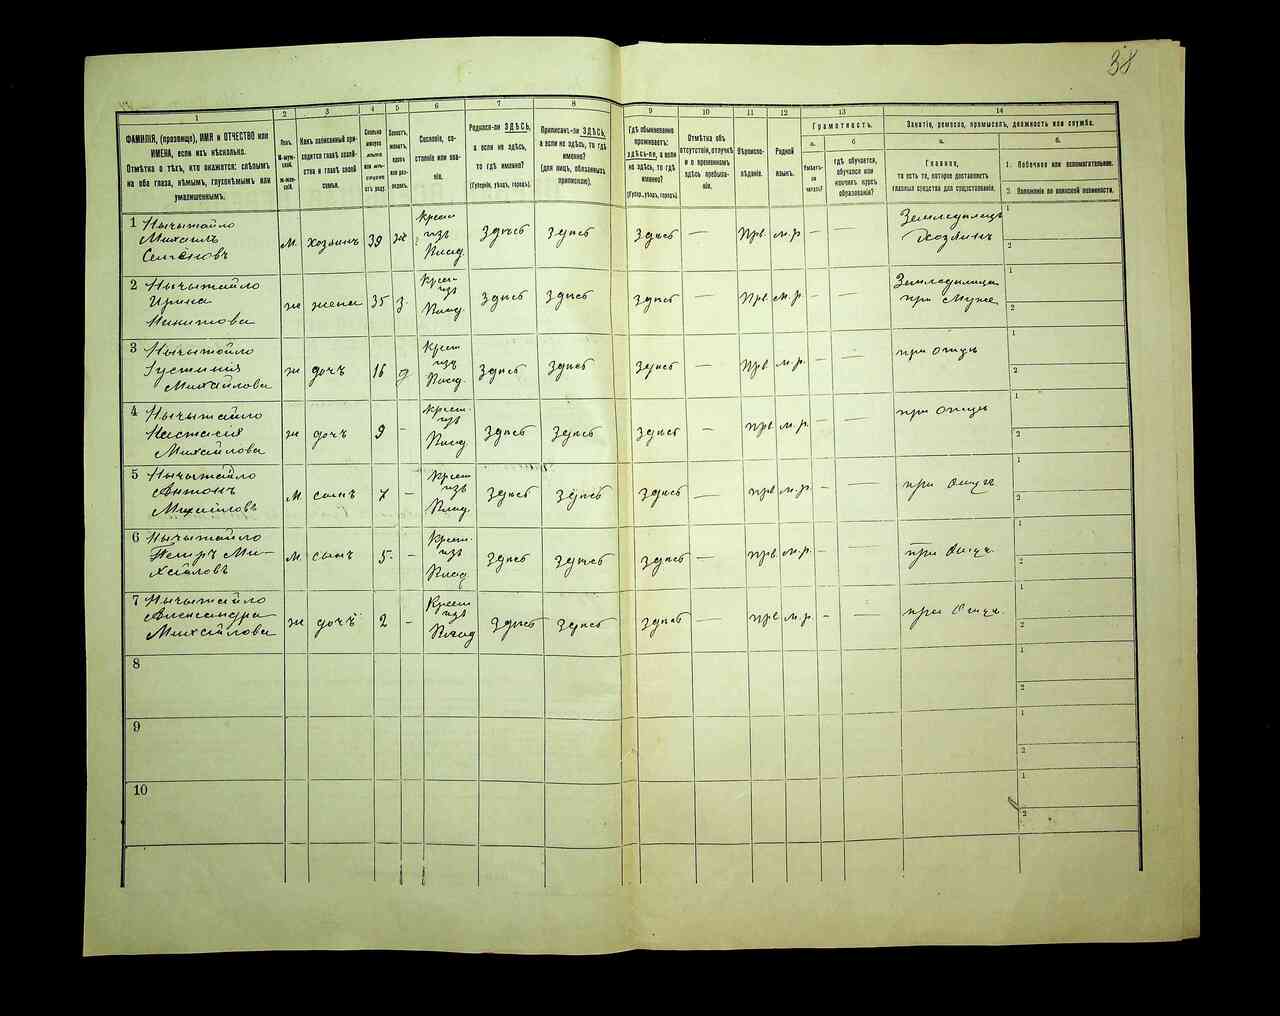 38
1
2
3
4
5
6
7
8
9
10
11
12
13
14
ФАМИЛІЯ, (прозвище), ИМЯ и ОТЧЕСТВО или
ИМЕНА, если ихъ нѣсколько.
Отмѣтка о тѣхъ, кто окажется: слѣпымъ
на оба глаза, нѣмымъ, глухонѣмымъ или
умалишеннымъ.
Полъ.
М-муж-
ской.
Ж-жен-
скій.
Какъ записанный при-
ходится главѣ хозяй-
ства и главѣ своей
семьи.
Сколько
минуло
лѣтъ
или мѣ-
сяцевъ
отъ роду.
Холостъ,
женатъ,
вдовъ
или раз-
веденъ.
Сословіе, со-
стояніе или зва-
ніе.
Родился-ли ЗДѢСЬ,
а если не здѣсь,
то гдѣ именно?
(Губернія, уѣздъ, городъ).
Приписанъ-ли ЗДѢСЬ,
а если не здѣсь, то гдѣ
именно?
(для лицъ, обязанныхъ
припискою).
Гдѣ обыкновенно
проживаетъ:
здѣсь-ли, а если
не здѣсь, то гдѣ
именно?
(Губер., уѣздъ, городъ).
Отмѣтка объ
отсутствіи, отлучкѣ
и о временномъ
здѣсь пребыва-
ніи.
Вѣроиспо-
вѣданіе.
Родной
языкъ.
Грамотность.
а.
Умѣетъ-
ли
читать?
б
гдѣ обучается,
обучался или
кончилъ курсъ
образованія?
Занятіе, ремесло, промыселъ, должность или служба.
а.
Главное,
то есть то, которое доставляетъ
главныя средства для существованія.
б.
1. Побочное или вспомогательное.
2. Положеніе по воинской повинности.
1 Ничытайло
Михаилъ
Семёновъ
м. хозяинъ 39 ж
Крест
изъ
Влад.
здѣсь здѣсь здѣсь — Прв. м.р — —
Земледѣлецъ
Хозяинъ
1
2
2 Ничытайло
Ирина
Никитова
ж жена 35 з.
Крест
изъ
Влад.
здѣсь здѣсь здѣсь — Прв. м.р. — —
Земледѣлица
при мужѣ
1
2
3 Ничытайло
Густинія
Михайлова
ж дочъ 16 д
Крест
изъ
Влад.
здѣсь здѣсь здѣсь — Прв. м.р. — —
при отцѣ
1
2
4 Ничытайло
Настасія
Михайлова
ж дочъ 9 -
Крест.
изъ
Влад.
здѣсь здѣсь здѣсь — прв. м.р. — —
при отцѣ
1
2
5 Ничытайло
Антонъ
Михайловъ
м сынъ 7 —
Крест
изъ
Влад.
здѣсь здѣсь здѣсь — прв. м.р. — —
при отцѣ
1
2
6 Ничытайло
Петръ Ми-
хайловъ
м. сынъ 5. —
Крест.
изъ
Влад
здѣсь здѣсь здѣсь — прв. м.р. — —
при отцѣ.
1
2
7 Ничытайло
Александра
Михайлова
ж дочъ 2 -
Крест
изъ
Влад
здѣсь здѣсь здѣсь — прв. м.р. —
при отцѣ.
1
2
8
1
2
9
1
2
10
1
2